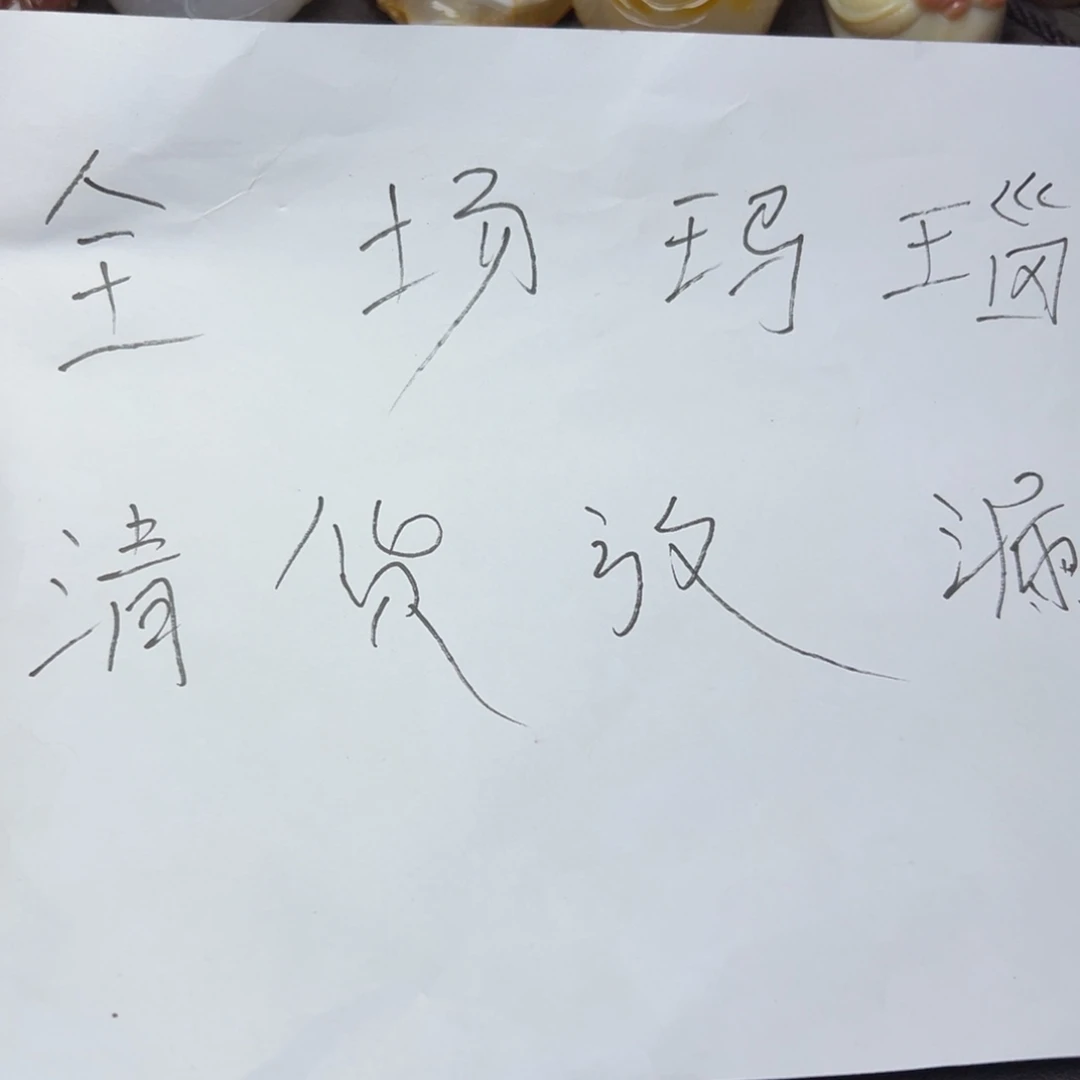 全场玛瑙
清货放漏